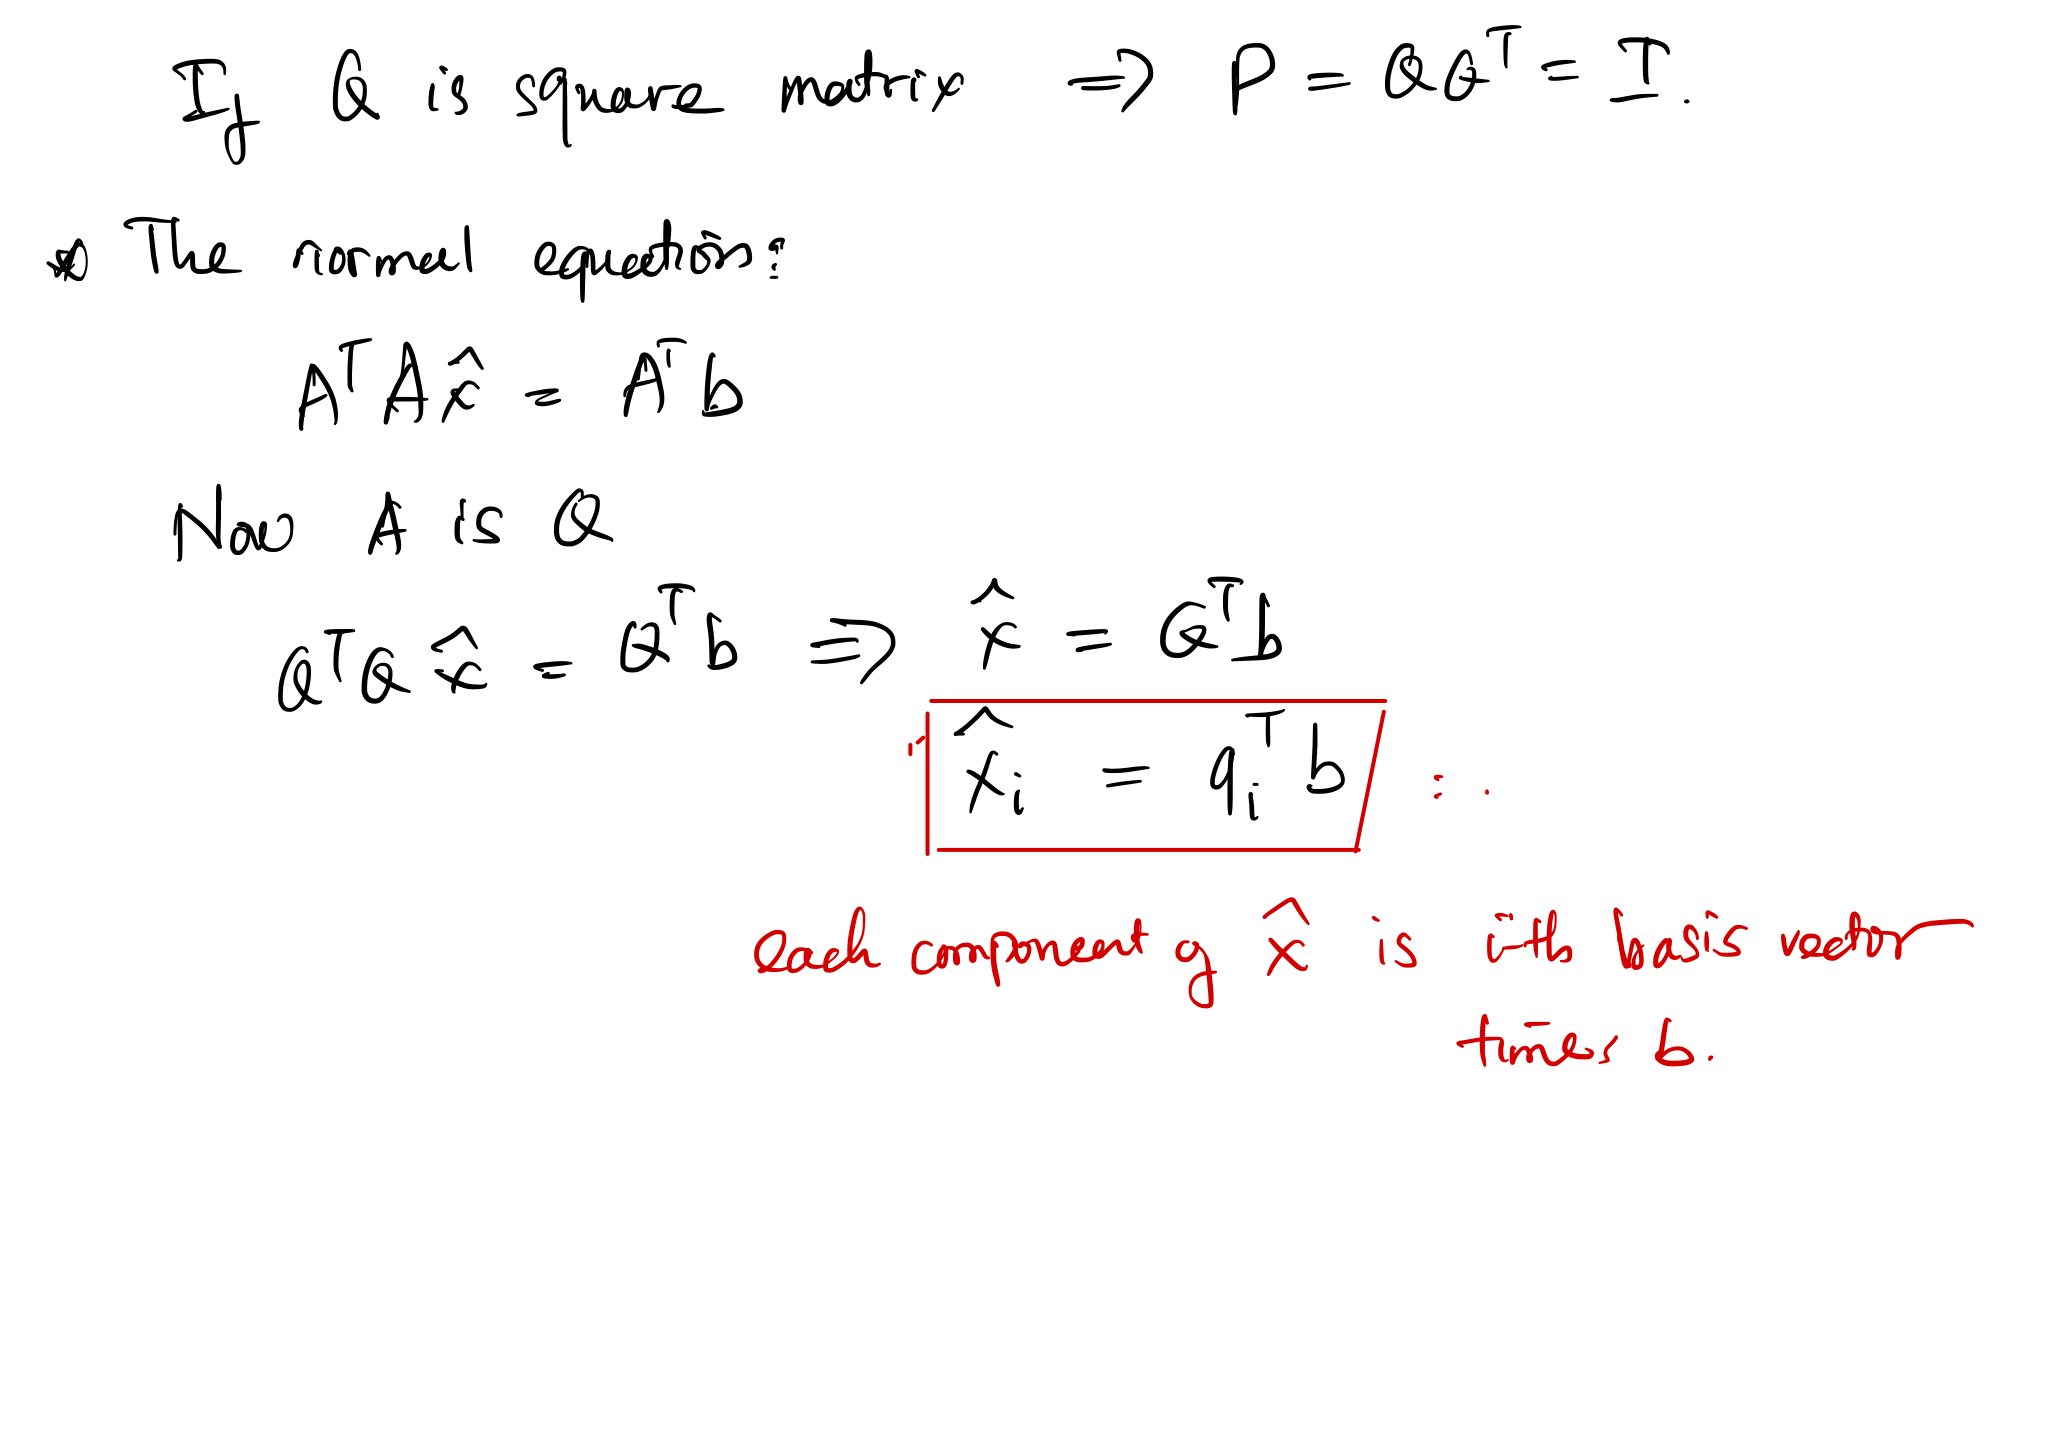 If Q is square matrix ⇒ P = QQᵀ = I.
* The normal equation:
AᵀA x̂ = Aᵀb
Now A is Q
QᵀQ x̂ = Qᵀb ⇒ x̂ = Qᵀb
x̂ᵢ = qᵢᵀ b
each component of x̂ is i-th basis vector
times b.